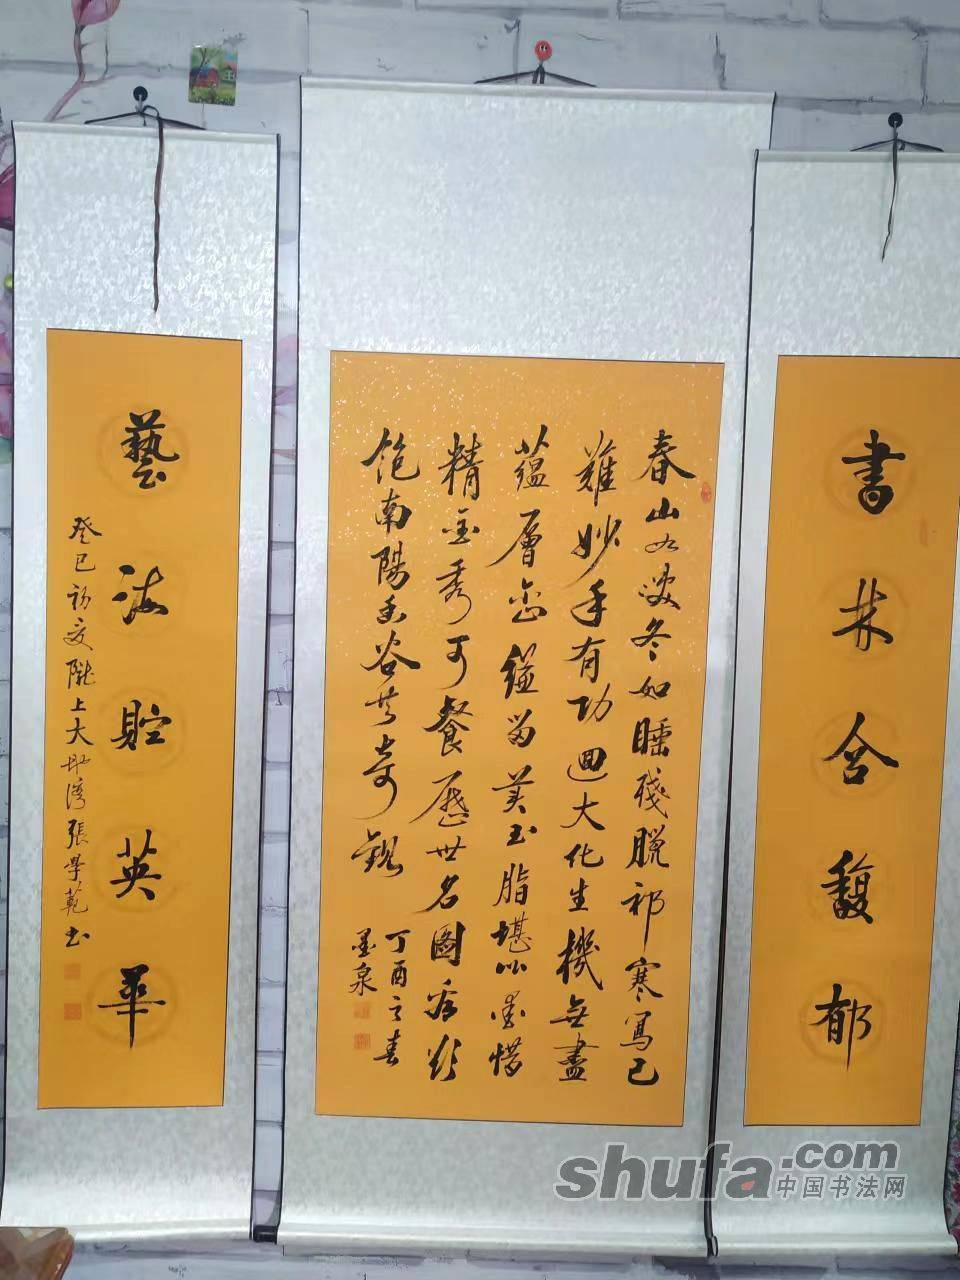 書林含馥郁
春山如笑冬如睡殘脫祁寒寫已
難妙手有功迴大化生機無盡
蘊層巒縑留美玉脂堪比墨惜
精金秀可餐歷世名圖看欲
飽南陽谷共奇觀
丁酉之春
墨泉
藝海貯英華
癸巳初夏隴上大地灣張學範書
shufa.com
中国书法网